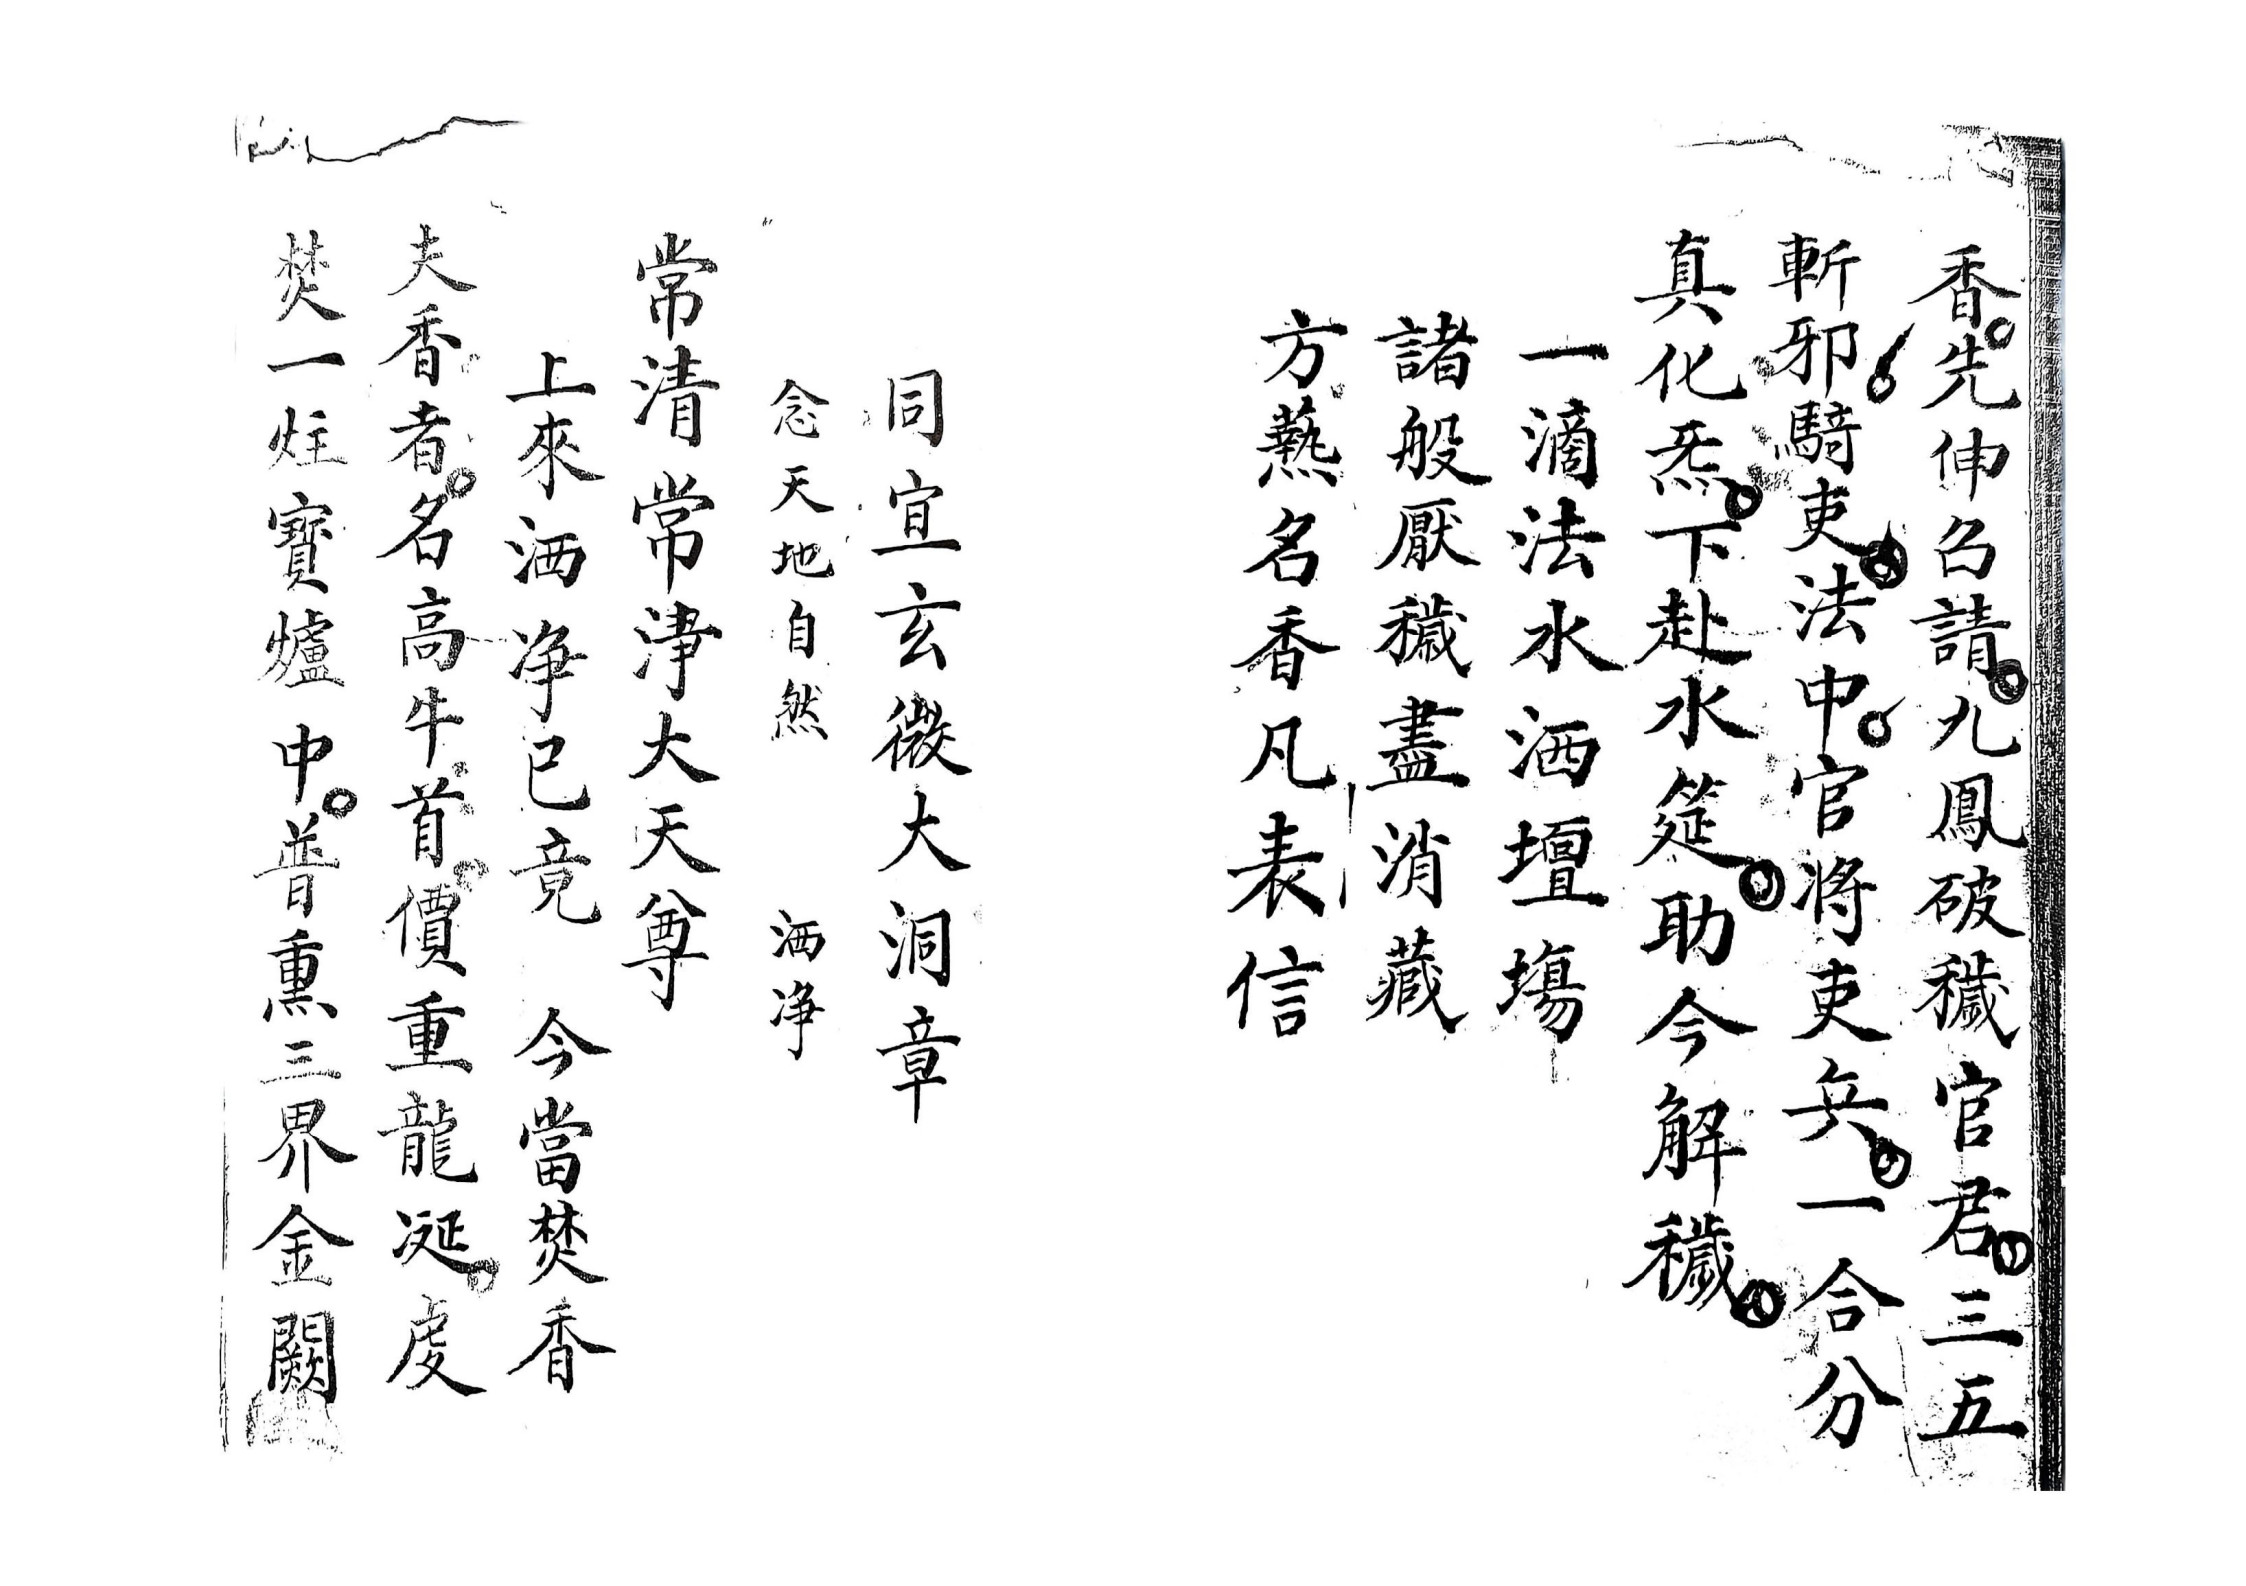 香。先伸召請。九鳳破穢官君。三五
斬邪騎吏。法中。官將吏兵。一合分
真化炁。下赴水筵。助今解穢。
一滴法水洒壇場
諸般厭穢盡消藏
方爇名香凡表信
同宜玄微大洞章
念天地自然 洒净
常清常淨大天尊
上來洒净已竟 今當焚香
夫香者。名高牛首。價重龍涎。處
焚一炷寶爐中。普熏三界金闕